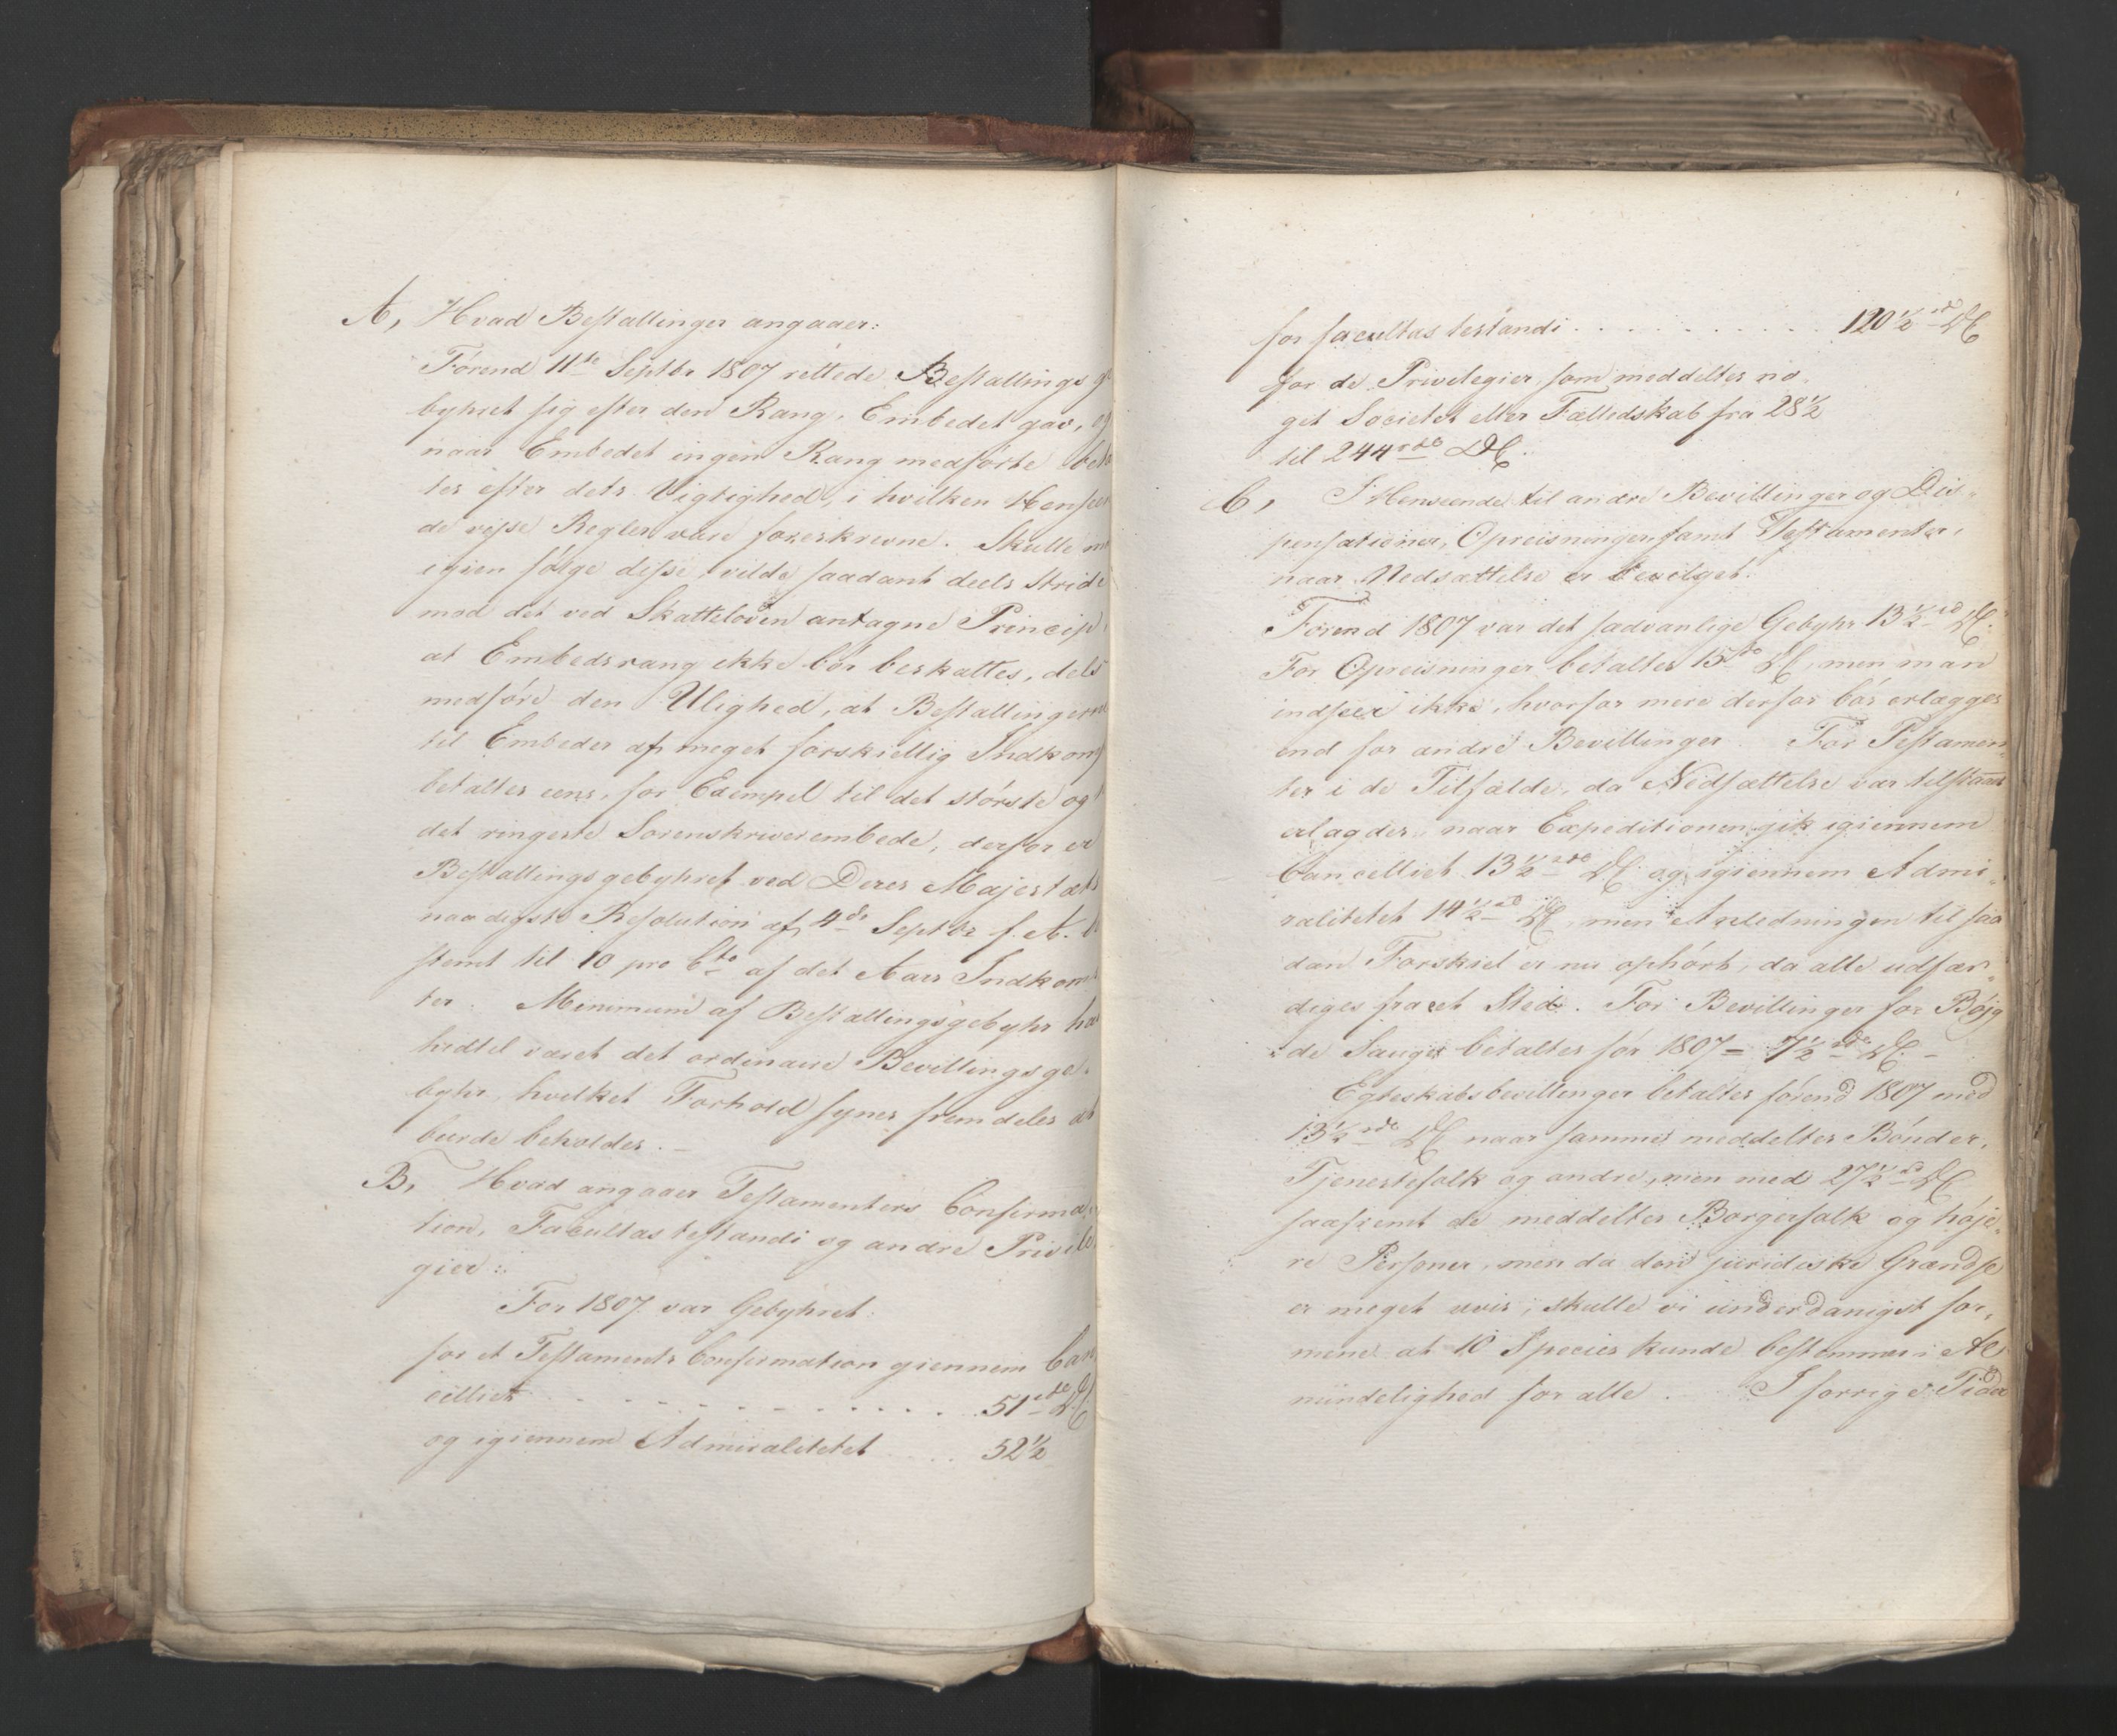 A, Hvad Bestallinger angaaer:
Førend 11te Septbr 1807 rettede Bestallings ge
byhret sig efter den Rang, Embedet gav, og
naar Embedet ingen Rang medførte beta
tes efter dets Vigtighed, i hvilken Henseen
de visse Regler vare foreskrevne. Skulle m
igien følge disse, vilde saadant deels stride
mod det ved Skatteloven antagne Princip,
at Embedsrang ikke bör beskattes, dels
medføre den Ulighed, at Bestallingerne
til Embeder af meget forskiellig Indkomst
betaltes eens, for Exempel til det største og
det ringeste Sorenskriverembede, derfor er
Bestallingsgebyhret ved Deres Majestæts
naadigste Resolution af 4de Septbr f. A. be
stemt til 10 pro Cto af det Aars Indkom
ter. Minimum af Bestallingsgebyhr har
hidtil været det ordinaire Bevillingsge-
byhr, hvilket Forhold synes fremdeles at
burde beholdes. –
B, Hvad angaaer Testamenters Confirma-
tion, Facultas testandi og andre Privile-
gier:
For 1807 var Gebyhret:
for et Testaments Confirmation giennem Can-
celliet . . . . . . . . . . . 51 rdr DC
og igiennem Admiralitetet . . . . 52½
for facultas testandi . . . . . . . . . . 120½ rd DC
for de Privilegier som meddeltes no-
get Societet eller Fælledskab fra 28½
til 244 rdr DC.
C, I Henseende til andre Bevillinger og Dis-
pensationer, Opreisninger samt Testamenter,
naar Nedsættelse er bevilget.
Førend 1807 var det sædvanlige Gebyhr 13½ rd DC.
For Opreisninger betaltes 15 rd DC, men man
indseer ikke, hvorfor mere derfor bör erlægges
end for andre Bevillinger. For Testamen-
ter i de Tilfælde, da Nedsættelse var tilstaaet
erlagdes, naar Expeditionen gik igiennem
Cancelliet 13½ rdr DC og igiennem Admi-
ralitetet 14½ rd DC, men Anledningen til saa
dan Forskiel er nu ophört, da alle udfær-
diges fra eet Sted. For Bevillinger for Böjg
de Sauger betaltes för 1807 – 7½ rdr DC. –
Egteskabsbevillinger betaltes förend 1807 med
13½ rdr DC naar samme meddeltes Bönder,
Tjenestefolk og andre, men med 27½ rd DC
saafremt de meddeltes Borgerfolk og höje-
re Personer, men da den juridiske Grændse
er meget uvis, skulle vi underdanigst for-
mene at 10 Species kunde bestemmes i Al-
mindelighed for alle. I forrige Tider